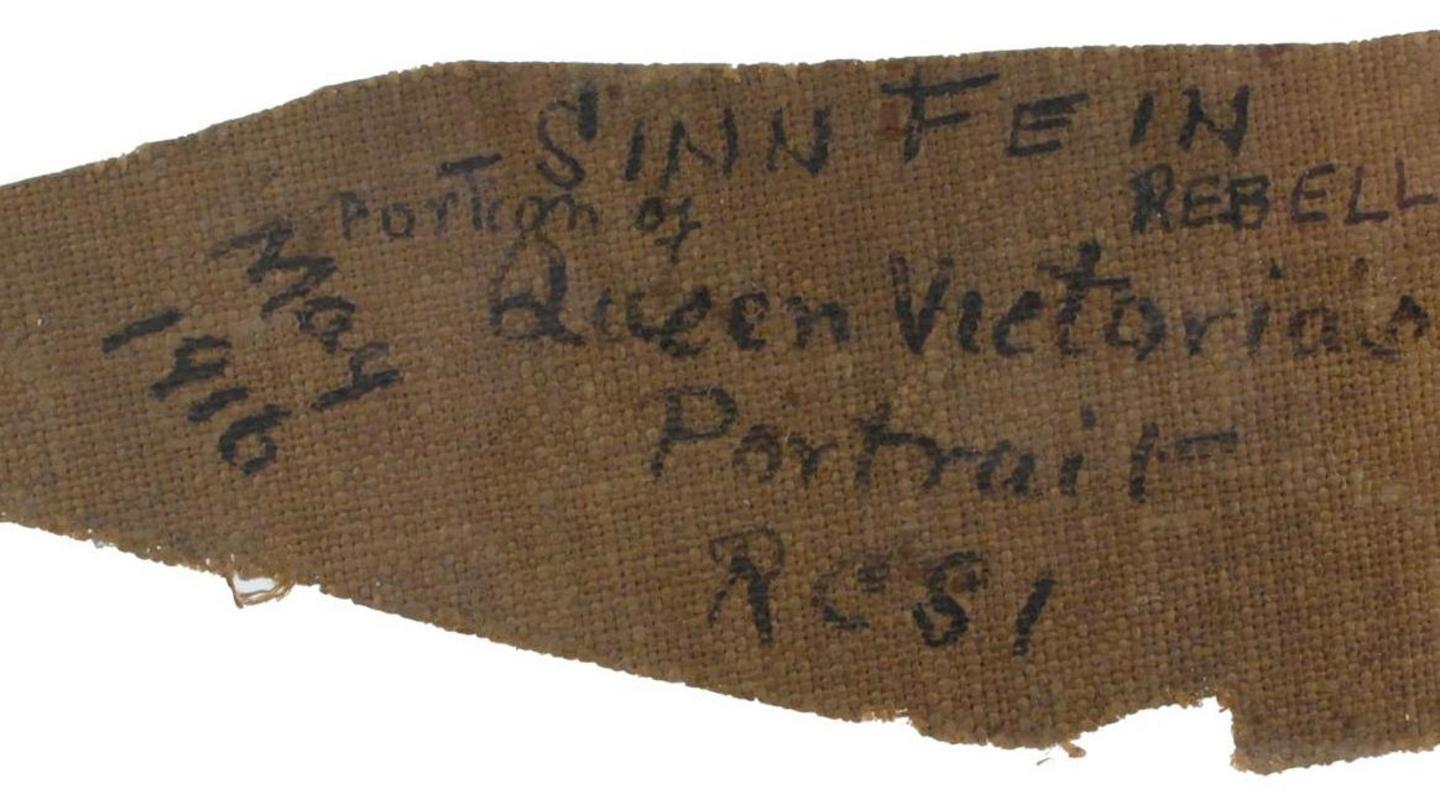 SINN FEIN
REBELL
Portion of
May
1916
Queen Victorias
Portrait
RCSI